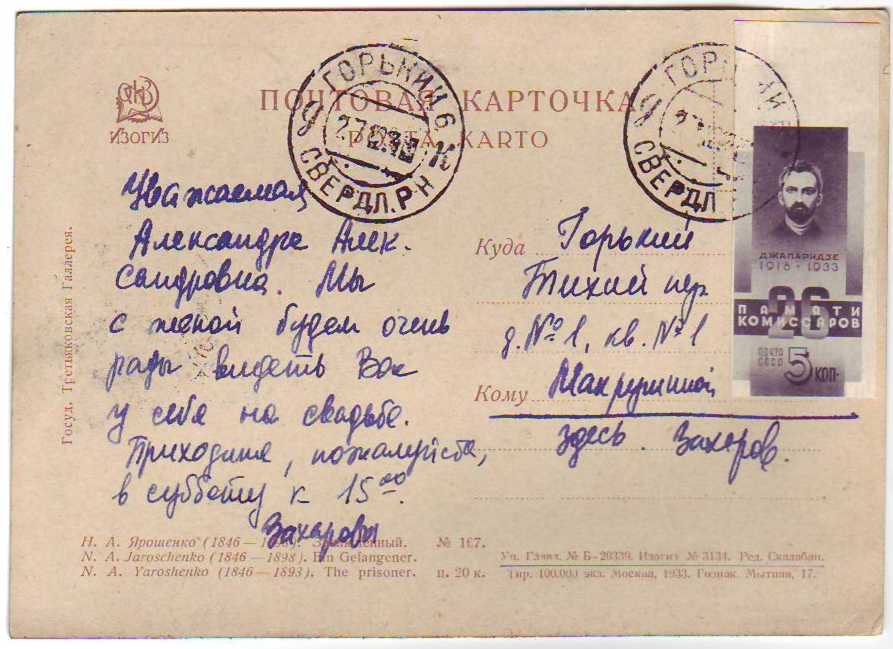 ИЗОГИЗ
ПОЧТОВАЯ КАРТОЧКА
POŜTA KARTO
ГОРЬКИЙ 6
27
СВЕРДЛ. Р-Н
СВЕРДЛ
ДЖАПАРИДЗЕ
1918 - 1933
26
ПАМЯТИ
КОМИССАРОВ
ПОЧТА
СССР
5 КОП.
Госуд. Третьяковская Галлерея.
Уважаемая
Александра Алек.
сандровна. Мы
с женой будем очень
рады видеть Вас
у себя на свадьбе.
Приходите, пожалуйста,
в субботу к 15 00.
Захаровы
Куда Горький
Тихий пер
д. №1, кв. №1
Кому
здесь. Захаров.
Н. А. Ярошенко (1846 — №167.
N. A. Jaroschenko (1846 — 1898). Ein Gefangener.
N. A. Yaroshenko (1846 — 1893). The prisoner. ц. 20 к.
Уп. Главл. № Б-29339. Изогиз № 3134. Ред. Скалабан.
Тир. 100.000 экз. Москва, 1933. Гознак. Мытная, 17.